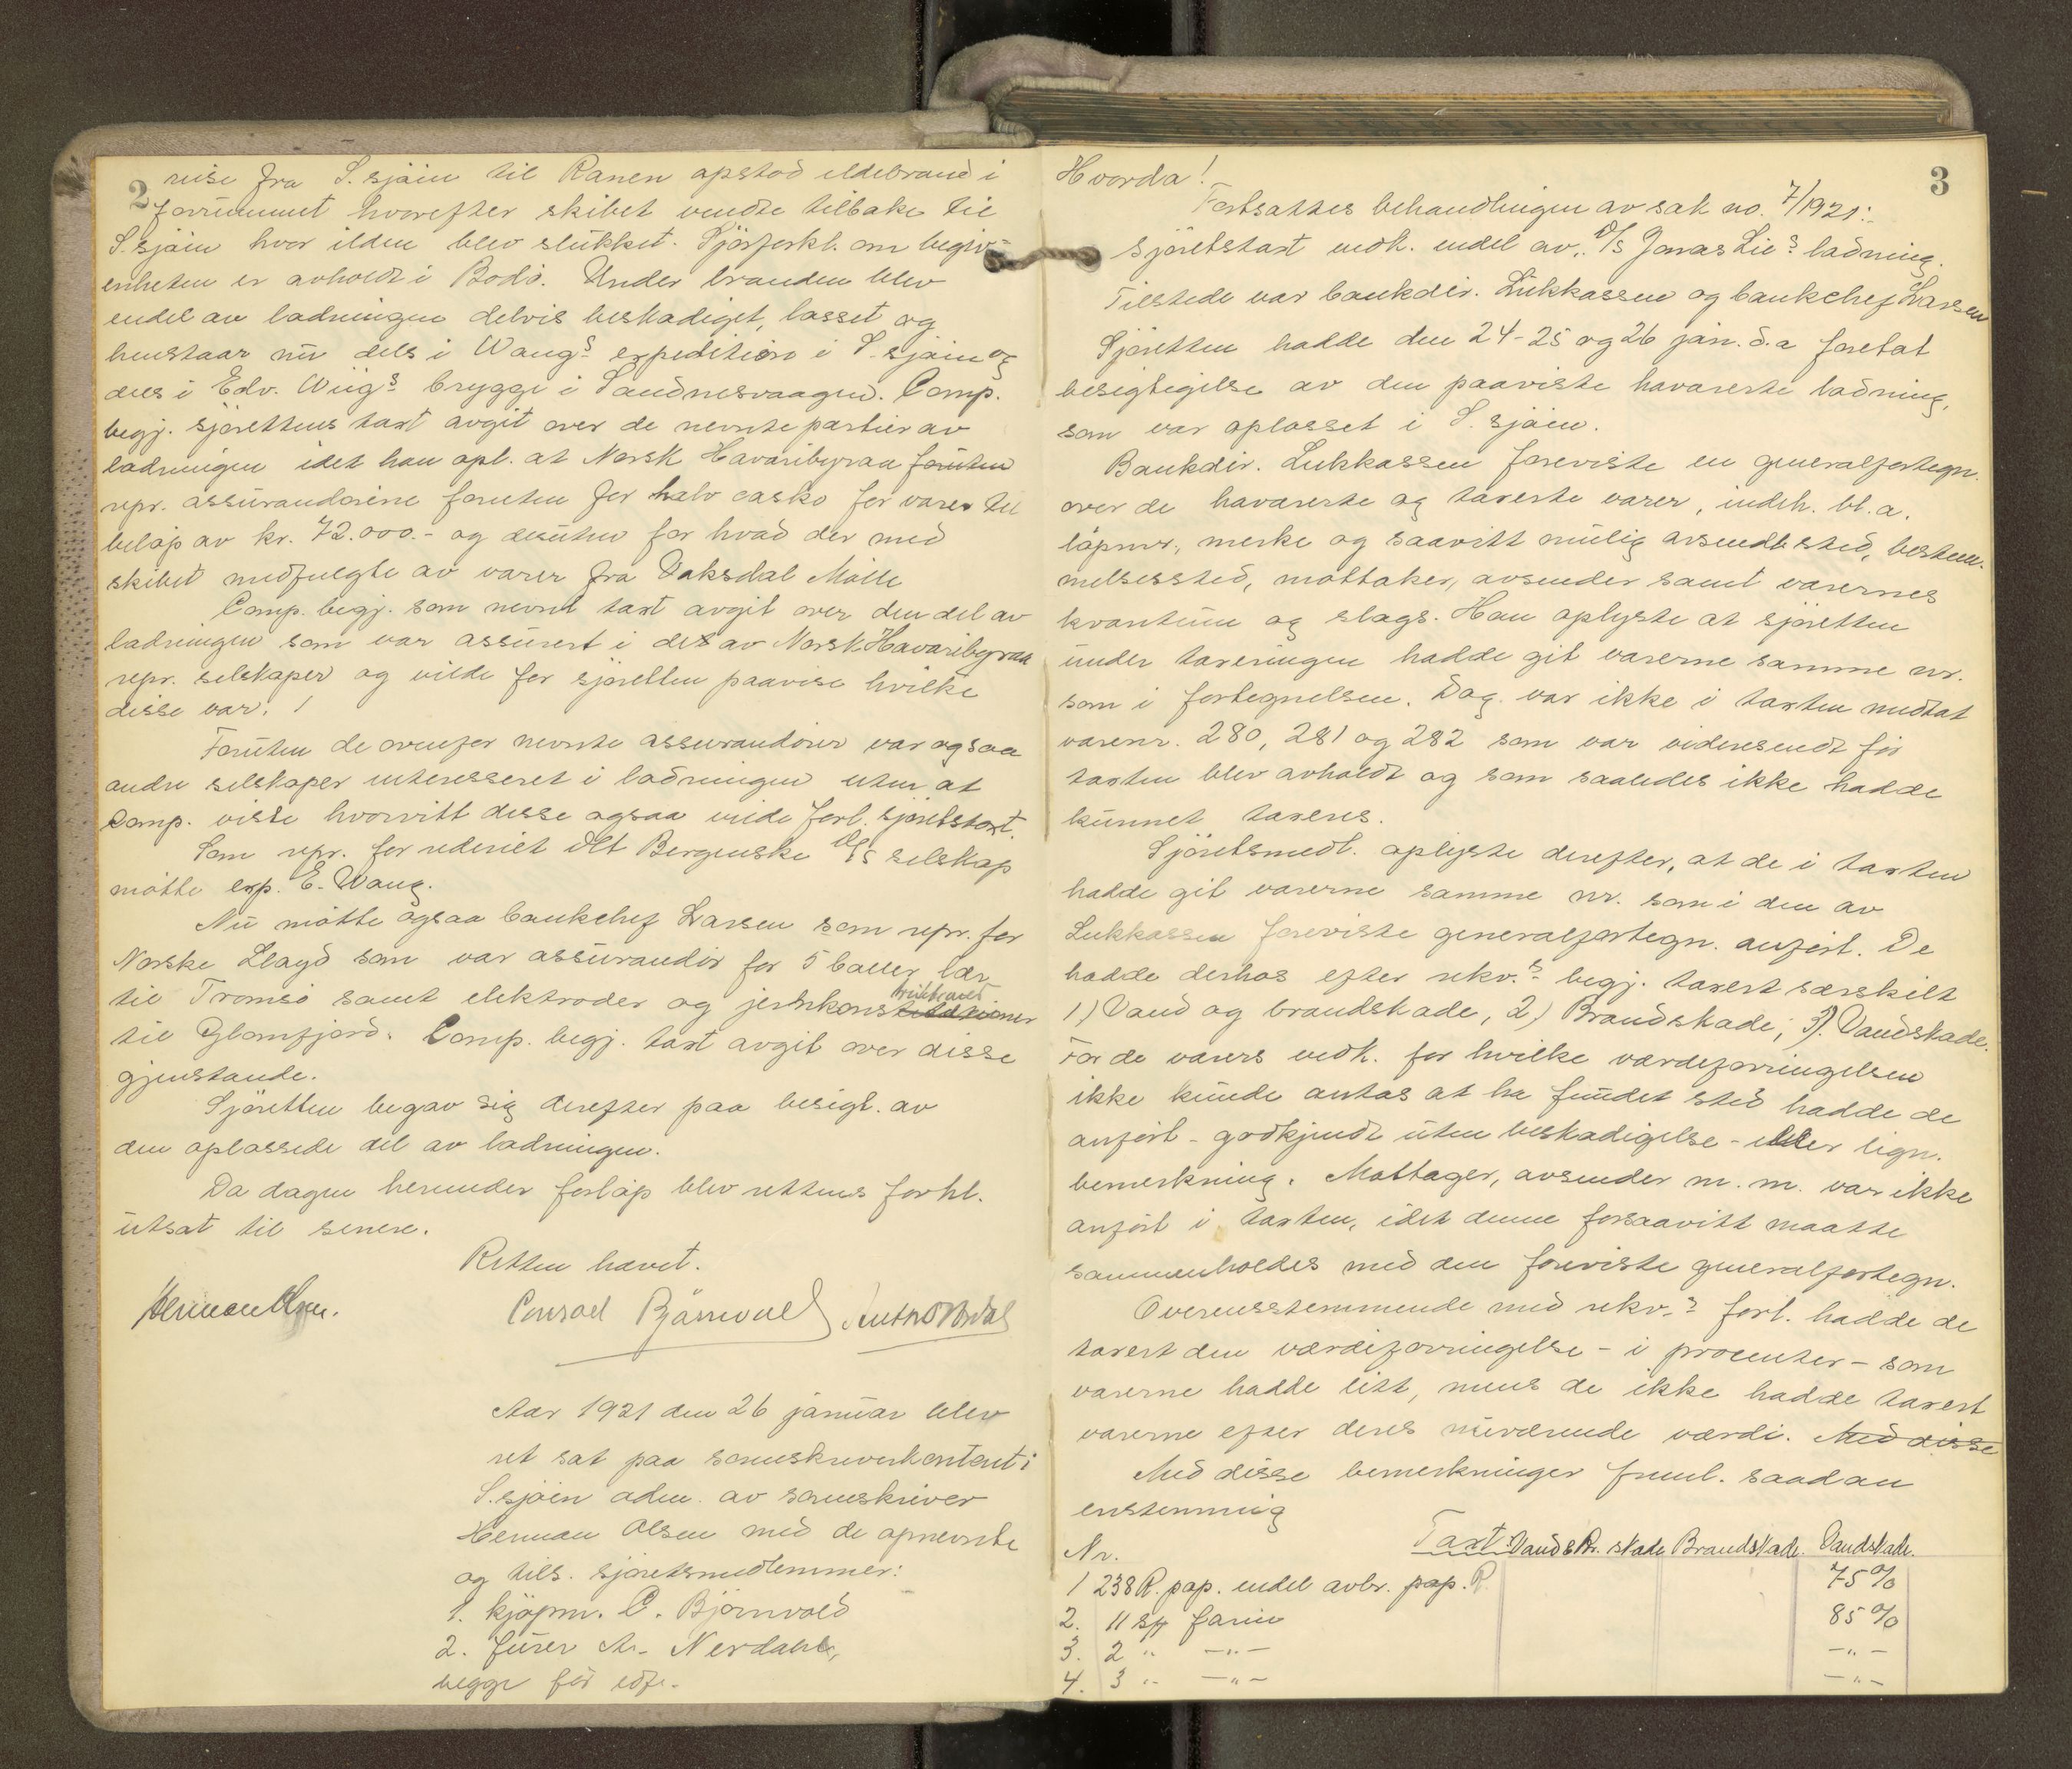 2
reise fra S.sjøen til Ranen opstod ildebrand i
forrummet hvorefter skibet vendte tilbake til
S.sjøen hvor ilden blev slukket. Sjøforkl. om begiv-
enheten er avholdt i Bodø. Under branden blev
endel av ladningen delvis beskadiget, losset og
henstaar nu dels i Wangs expedition i S.sjøen og
dels i Edv. Wiigs brygge i Sandnesvaagen. Comp.
begj. sjørettens taxt avgit over de nevnte partier av
ladningen idet han opl. at Norsk Havaribyraa foruten
repr. assurandørene foruten for halv casko for varer til
beløp av kr. 72.000.- og desuten for hvad der med
skibet medfulgte av varer fra Vaksdal Mølle
Comp. begj. som nevnt taxt avgit over den del av
ladningen som var assurert i det av Norsk Havaribyraa
repr. selskaper og vilde for sjøretten paavise hvilke
disse var. /
Foruten de ovenfor nevnte assurandører var ogsaa
andre selskaper interesseret i ladningen uten at
Comp. visste hvorvitt disse ogsaa vilde forl. sjøretstaxt.
Som repr. for rederiet Det Bergenske D/S selskap
møtte exp. E. Wang.
Nu møtte ogsaa bankchef Larsen som repr. for
Norske Lloyd som var assurandør for 5 baller lær
til Tromsø samt elektroder og jernkonstruktioner
til Glomfjord. Comp. begj. taxt avgit over disse
gjenstande.
Sjøretten begav sig derefter paa besigt. av
den oplossede del av ladningen.
Da dagen herunder forløp blev rettens forhl.
utsat til senere.
Retten hævet.
Herman Olsen. Conrad Bjørnvold
Aar 1921 den 26 januar blev
ret sat paa sorenskriverkontoret i
S.sjøen adm. av sorenskriver
Herman Olsen med de opnevnte
og tils. sjøretsmedlemmer:
1. kjøpm. C. Bjørnvold
2. furer A. Nerdahl,
begge før edf.
3
Hvorda!
Fortsattes behandlingen av sak no. 7/1921:
Sjøretstaxt vedk. endel av D/S Jonas Lies ladning.
Tilstede var bankdir. Lukkassen og bankchef Larsen
Sjøretten hadde den 24-25 og 26 jan. d.a foretat
besigtigelse av den paaviste havarerte ladning,
som var oplosset i S.sjøen.
Bankdir. Lukkassen foreviste en generalfortegn.
over de havarerte og taxerte varer, indeh. bl.a.
løpenr., merke og saavitt mulig avsendt sted, bestem-
melsessted, mottaker, avsender samt varernes
kvantum og slags. Han oplyste at sjøretten
under taxeringen hadde git varerne samme nr.
som i fortegnelsen. Dog var ikke i taxten medtat
varenr. 280, 281 og 282 som var videresendt før
taxten blev avholdt og som saaledes ikke hadde
kunnet taxeres.
Sjøretsmedl. oplyste derefter, at de i taxten
hadde git varerne samme nr. som i den av
Lukkassen foreviste generalfortegn. anført. De
hadde derhos efter rekv.s begj. taxert særskilt
1) Vand og brandskade, 2) Brandskade, 3). Vandskade.
For de varers vedk. for hvilke værdiforringelsen
ikke kunde antas at ha fundet sted hadde de
anført - godkjendt uten beskadigelse - eller lign.
bemerkning. Mottager, avsender m. m. var ikke
anført i taxten, idet denne forsaavitt maatte
sammenholdes med den foreviste generalfortegn.
Overensstemmende med rekv.s forl. hadde de
taxert den værdiforringelse - i procenter - som
varerne hadde litt, mens de ikke hadde taxert
varerne efter deres nuværende værdi. Med disse
Med disse bemerkninger freml. saadan
enstemmig
Taxt:
Nr. Vand & Br. skade Brandskade. Vandskade.
1 238 R. pap. endel avbr. pap. R 75%
2. 11 sk farin 85%
3. 2 " -"- -"-
4. 3 " -"- -"-